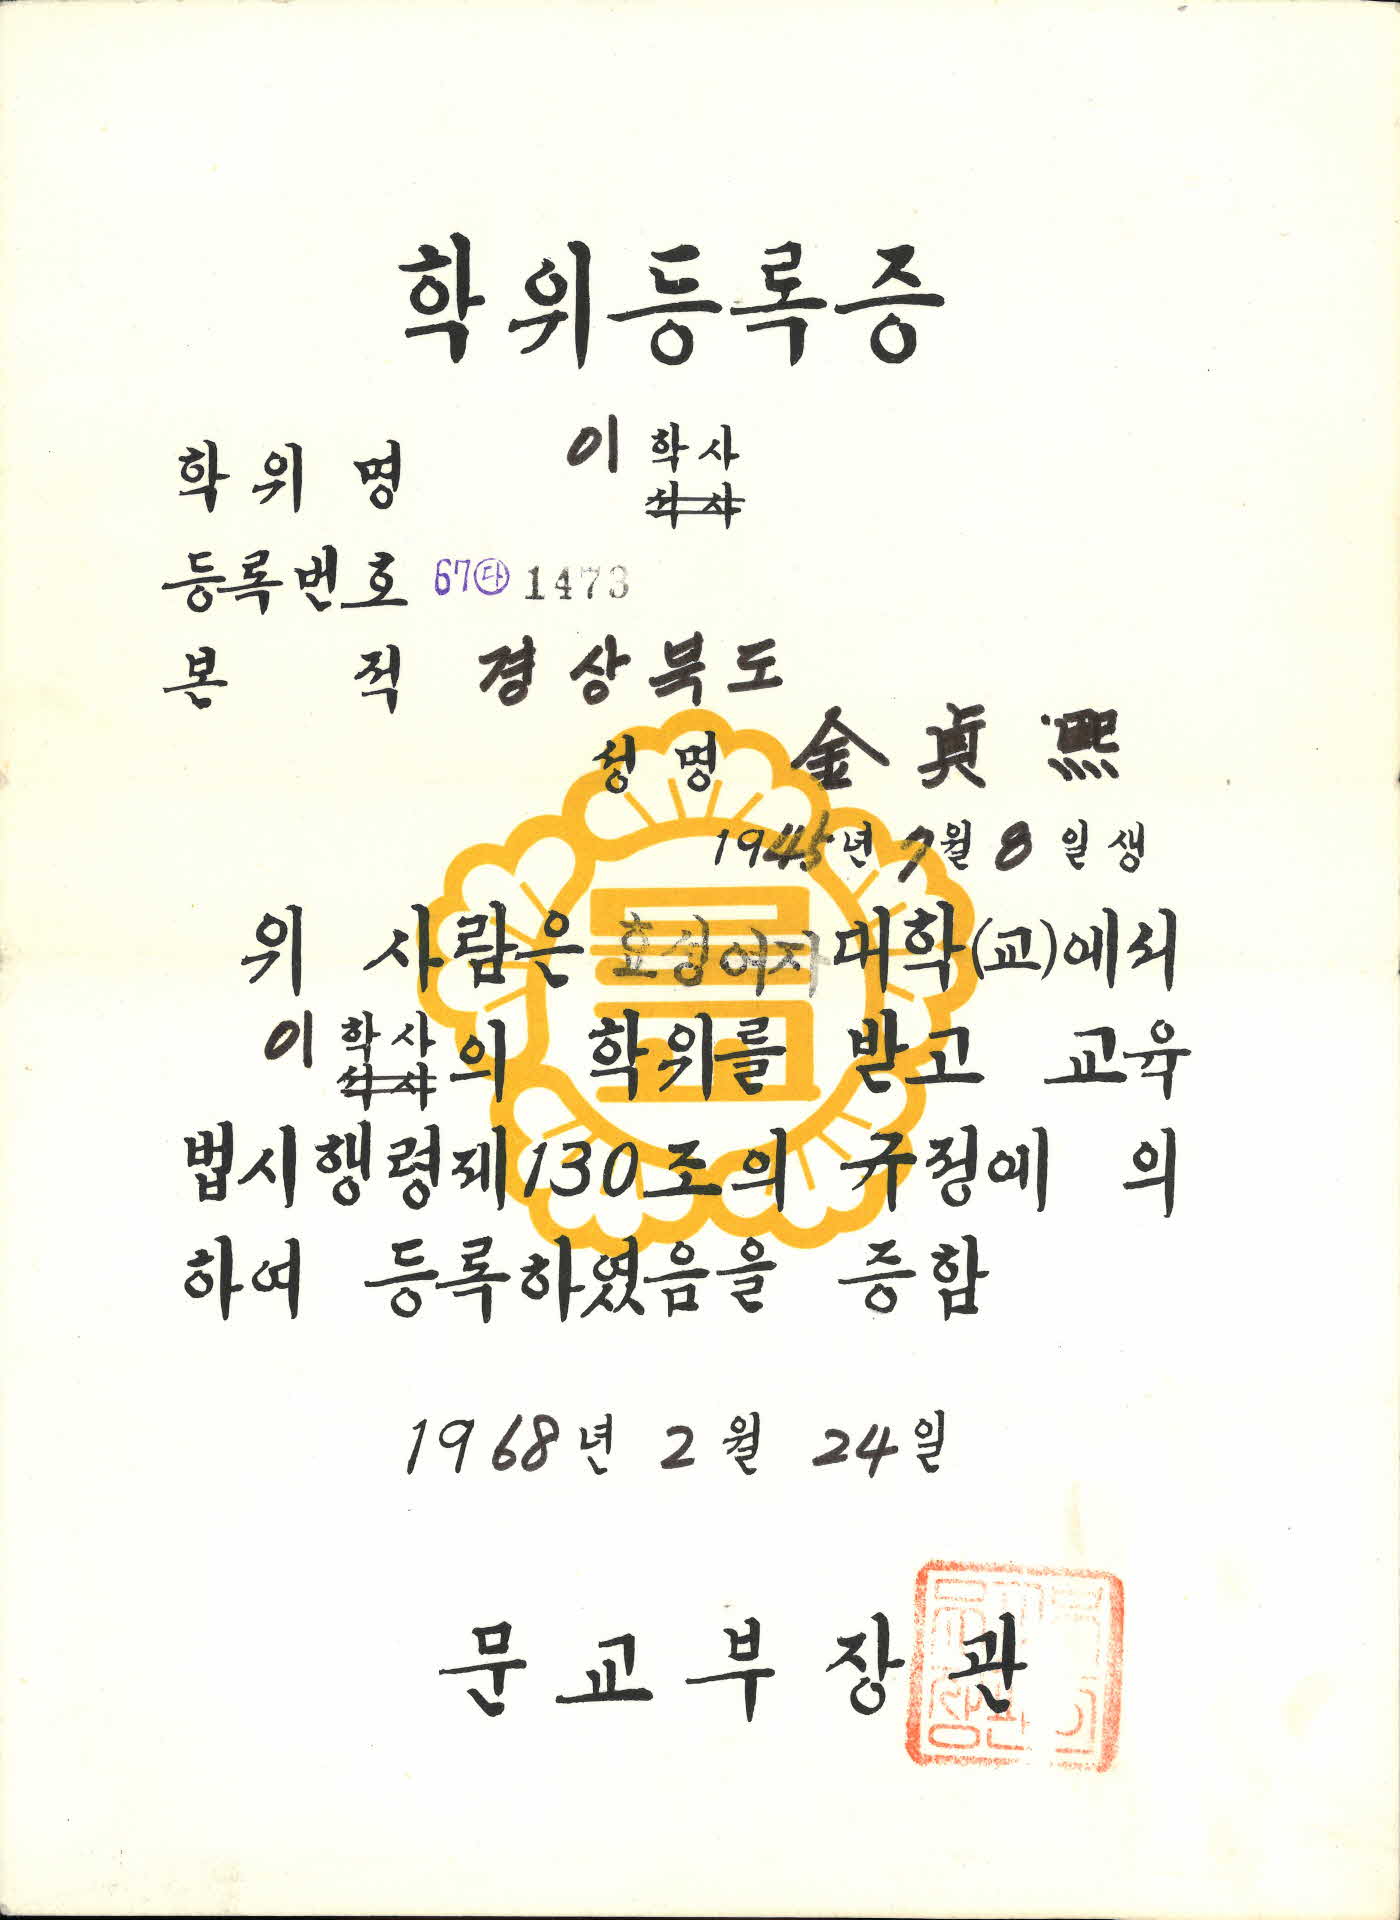 학위등록증
학위명 이학사
석사
등록번호 67㉰1473
본적 경상북도
성명 金貞熙
1945년 7월 8일생
위 사람은 효성여자대학(교)에서
이학사의 학위를 받고 교육
석사
법시행령제130조의 규정에 의
하여 등록하였음을 증함
1968년 2월 24일
문교부장관